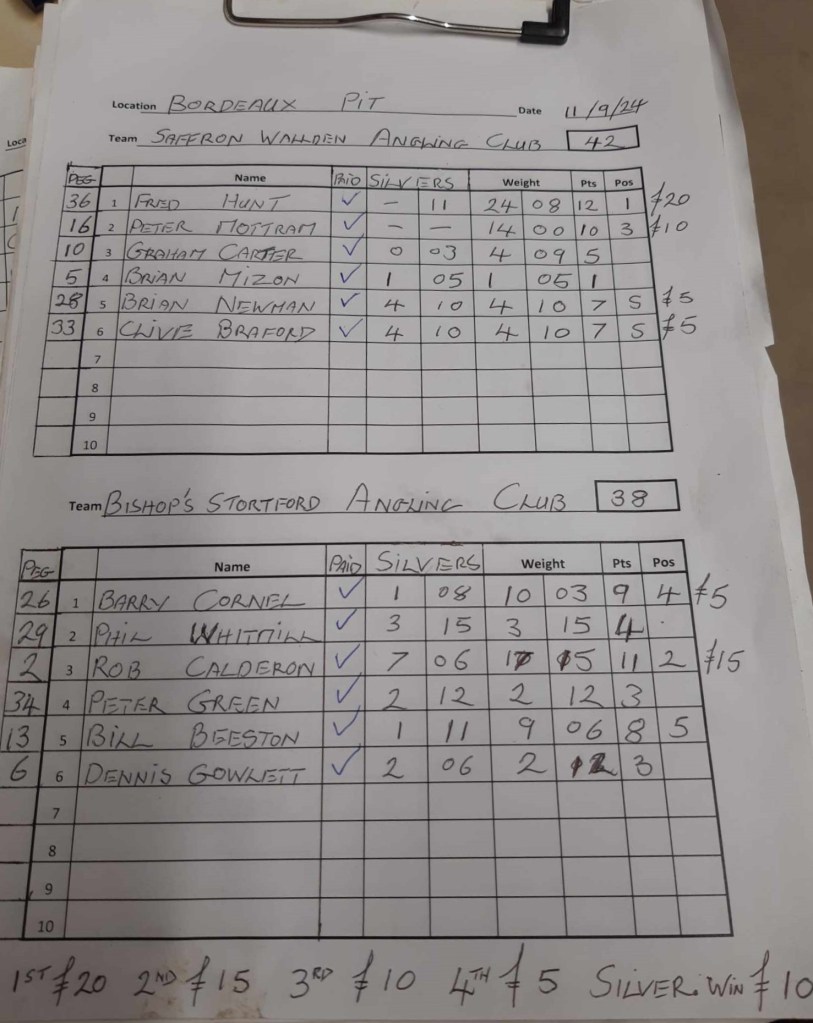 Location BORDEAUX PIT Date 11/9/24
Team SAFFRON WALLDEN ANGLING CLUB 42
PEG Name PAID SILVERS Weight Pts Pos
36 1 FRED HUNT ✓ - 11 24 08 12 1 £20
16 2 PETER MOTTRAM ✓ - - 14 00 10 3 £10
10 3 GRAHAM CARTER ✓ 0 03 4 09 5
5 4 BRIAN MIZON ✓ 1 05 1 05 1
28 5 BRIAN NEWMAN ✓ 4 10 4 10 7 5 £5
33 6 CLIVE BRAFORD ✓ 4 10 4 10 7 5 £5
7
8
9
10
Team BISHOP'S STORTFORD ANGLING CLUB 38
PEG Name PAID SILVERS Weight Pts Pos
26 1 BARRY CORNEL ✓ 1 08 10 03 9 4 £5
29 2 PHIL WHITMILL ✓ 3 15 3 15 4
2 3 ROB CALDERON ✓ 7 06 17 15 11 2 £15
34 4 PETER GREEN ✓ 2 12 2 12 3
13 5 BILL BEESTON ✓ 1 11 9 06 8 5
6 6 DENNIS GOWLETT ✓ 2 06 2 12 3
7
8
9
10
1ST £20 2ND £15 3RD £10 4TH £5 SILVER. WIN £10